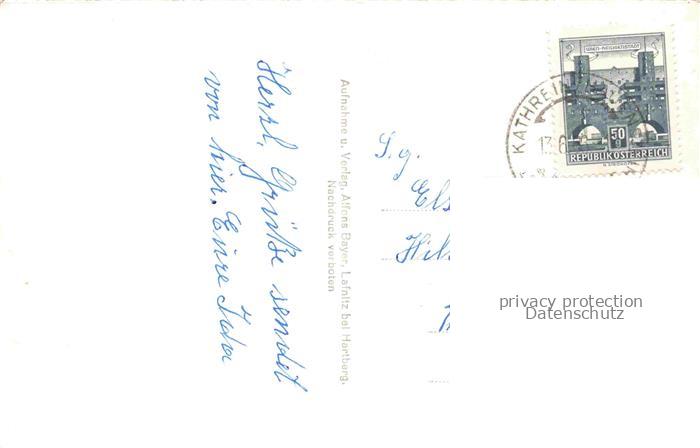 Herzl. Grüße sendet
von hier. Eure Ida
Aufnahme u. Verlag, Alfons Bayer, Lafnitz bei Hartberg,
Nachdruck verboten
S. g.
WIEN-HEILIGENSTADT
50
g
REPUBLIK ÖSTERREICH
KATHREIN
13.6
privacy protection
Datenschutz